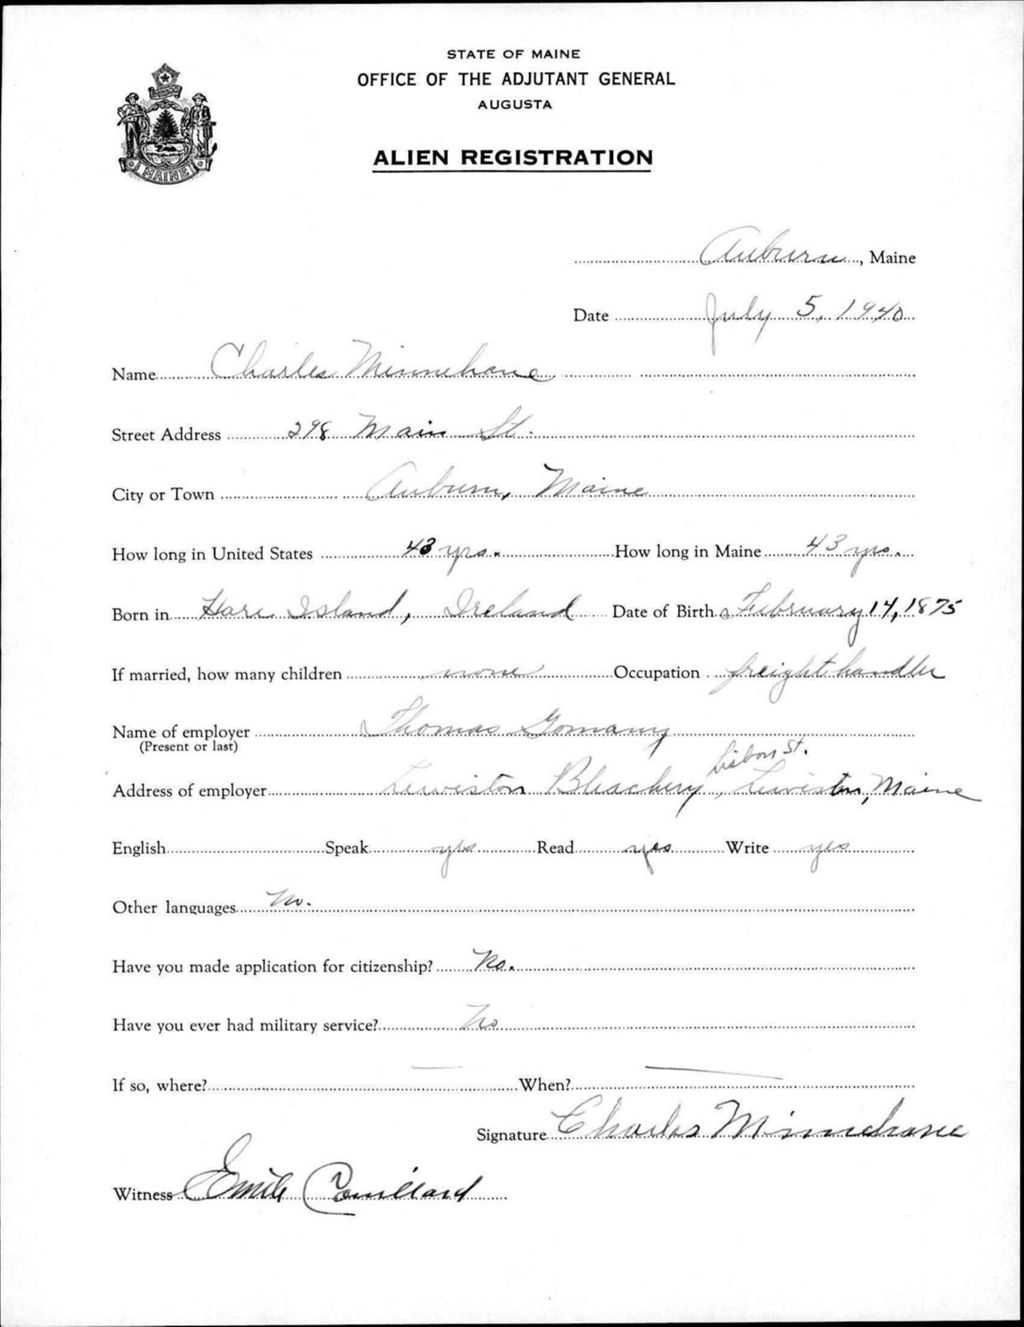 STATE OF MAINE
OFFICE OF THE ADJUTANT GENERAL
AUGUSTA
ALIEN REGISTRATION
MAINE
Auburn, Maine
Date July 5, 1940
Name Charles Minnehane
Street Address 298 Main St.
City or Town Auburn, Maine
How long in United States 43 yrs. How long in Maine 43 yrs.
Born in Hare Island, Ireland Date of Birth February 14, 1875
If married, how many children none Occupation freight handler
Name of employer Thomas Gomany
(Present or last)
Lisbon St.
Address of employer Lewiston Bleachery, Lewiston, Maine
English Speak yes Read yes Write yes
Other languages No.
Have you made application for citizenship? No.
Have you ever had military service? No
If so, where? — When? —
Signature Charles Minnehane
Witness Emile Couillard